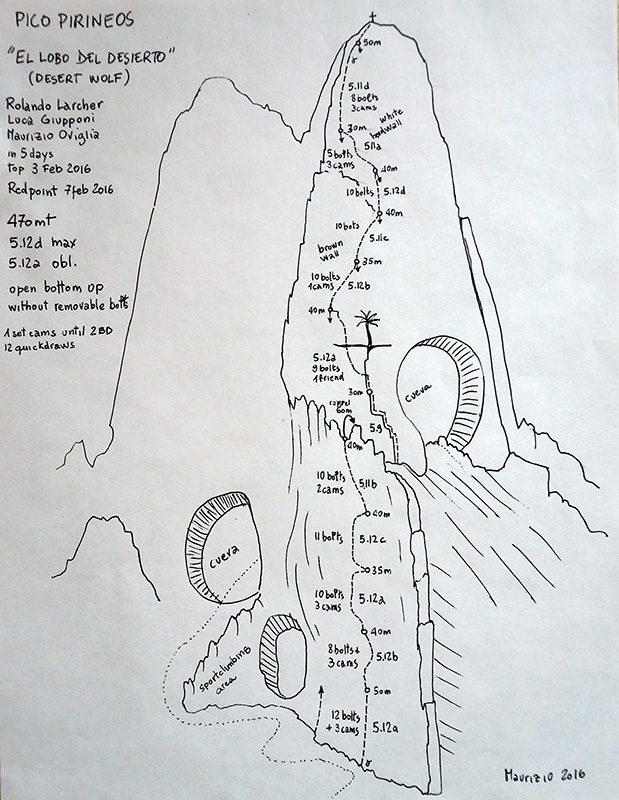 PICO PIRINEOS
"EL LOBO DEL DESIERTO"
(DESERT WOLF)
Rolando Larcher
Luca Giupponi
Maurizio Oviglia
in 5 days
top 3 Feb 2016
Redpoint 7 feb 2016
470mt
5.12d max
5.12a obl.
open bottom up
without removable bolts
1 set cams until 2BD
12 quickdraws
50m
5.11d
8 bolts
3 cams
white
headwall
30m
5.11a
5 bolts
3 cams
40m
10 bolts
5.12d
40m
10 bolts
5.11c
brown
wall
35m
10 bolts
1 cams
5.12b
40m
5.12a
9 bolts
1 friend
30m
cueva
rappel
60m
5.9
40m
10 bolts
2 cams
5.11b
40m
11 bolts
5.12c
35m
cueva
10 bolts
3 cams
5.12a
40m
8 bolts+
3 cams
5.12b
sportclimbing
area
50m
12 bolts
+ 3 cams
5.12a
Maurizio 2016